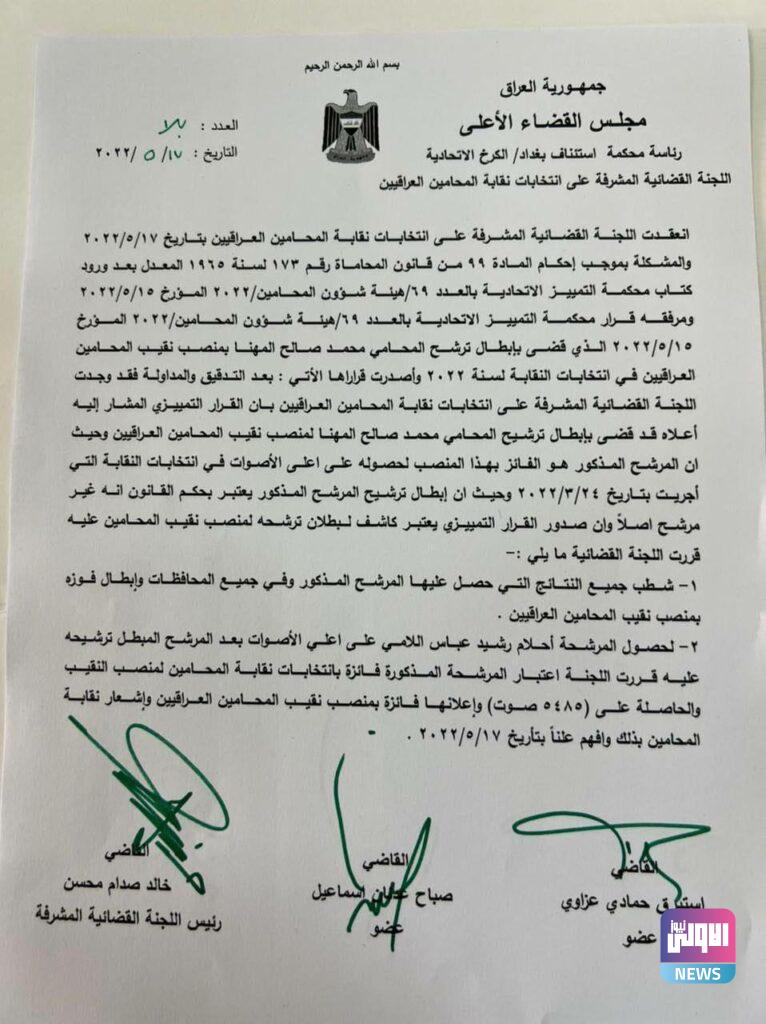 بسم الله الرحمن الرحيم
جمهورية العراق
مجلس القضاء الأعلى
رئاسة محكمة استئناف بغداد/ الكرخ الاتحادية
اللجنة القضائية المشرفة على انتخابات نقابة المحامين العراقيين
العدد : بلا
التاريخ : ١٧/ ٥ /٢٠٢٢
انعقدت اللجنة القضائية المشرفة على انتخابات نقابة المحامين العراقيين بتاريخ ٢٠٢٢/٥/١٧
والمشكلة بموجب إحكام المادة ٩٩ من قانون المحاماة رقم ١٧٣ لسنة ١٩٦٥ المعدل بعد ورود
كتاب محكمة التمييز الاتحادية بالعدد ٦٩/هيئة شؤون المحامين/٢٠٢٢ المؤرخ ٢٠٢٢/٥/١٥
ومرفقه قرار محكمة التمييز الاتحادية بالعدد ٦٩/هيئة شؤون المحامين/٢٠٢٢ المؤرخ
٢٠٢٢/٥/١٥ الذي قضى بإبطال ترشح المحامي محمد صالح المهنا بمنصب نقيب المحامين
العراقيين في انتخابات النقابة لسنة ٢٠٢٢ وأصدرت قراراها الأتي : بعد التدقيق والمداولة فقد وجدت
اللجنة القضائية المشرفة على انتخابات نقابة المحامين العراقيين بان القرار التمييزي المشار إليه
أعلاه قد قضى بإبطال ترشيح المحامي محمد صالح المهنا لمنصب نقيب المحامين العراقيين وحيث
ان المرشح المذكور هو الفائز بهذا المنصب لحصوله على اعلى الأصوات في انتخابات النقابة التي
أجريت بتاريخ ٢٠٢٢/٣/٢٤ وحيث ان إبطال ترشيح المرشح المذكور يعتبر بحكم القانون انه غير
مرشح اصلاً وان صدور القرار التمييزي يعتبر كاشف لبطلان ترشحه لمنصب نقيب المحامين عليه
قررت اللجنة القضائية ما يلي :-
١- شطب جميع النتائج التي حصل عليها المرشح المذكور وفي جميع المحافظات وإبطال فوزه
بمنصب نقيب المحامين العراقيين .
٢- لحصول المرشحة أحلام رشيد عباس اللامي على اعلي الأصوات بعد المرشح المبطل ترشيحه
عليه قررت اللجنة اعتبار المرشحة المذكورة فائزة بانتخابات نقابة المحامين لمنصب النقيب
والحاصلة على (٥٤٨٥ صوت) وإعلانها فائزة بمنصب نقيب المحامين العراقيين وإشعار نقابة
المحامين بذلك وافهم علناً بتأريخ ٢٠٢٢/٥/١٧ .
القاضي
استبرق حمادي عزاوي
عضو
القاضي
صباح عدنان اسماعيل
عضو
القاضي
خالد صدام محسن
رئيس اللجنة القضائية المشرفة
الاولى نيوز
NEWS